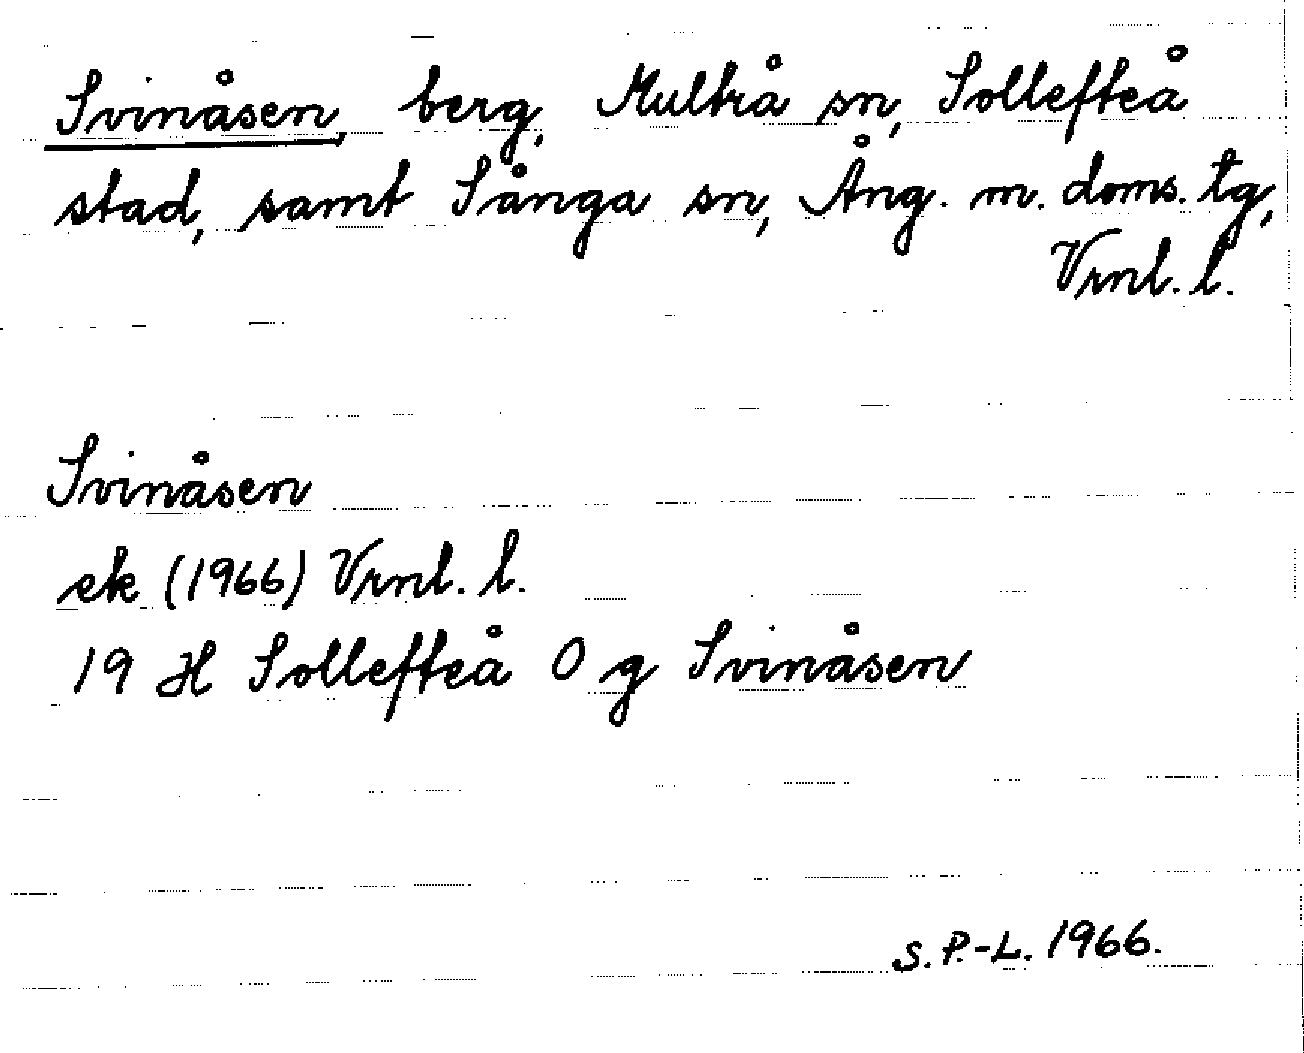 Svinåsen, berg, Multrå sn, Sollefteå
stad, samt Sånga sn, Ång. m. doms. tg,
Vrnl. l.
Svinåsen
ek (1966) Vrnl. l.
19 H Sollefteå O g Svinåsen
S. P.-L. 1966.